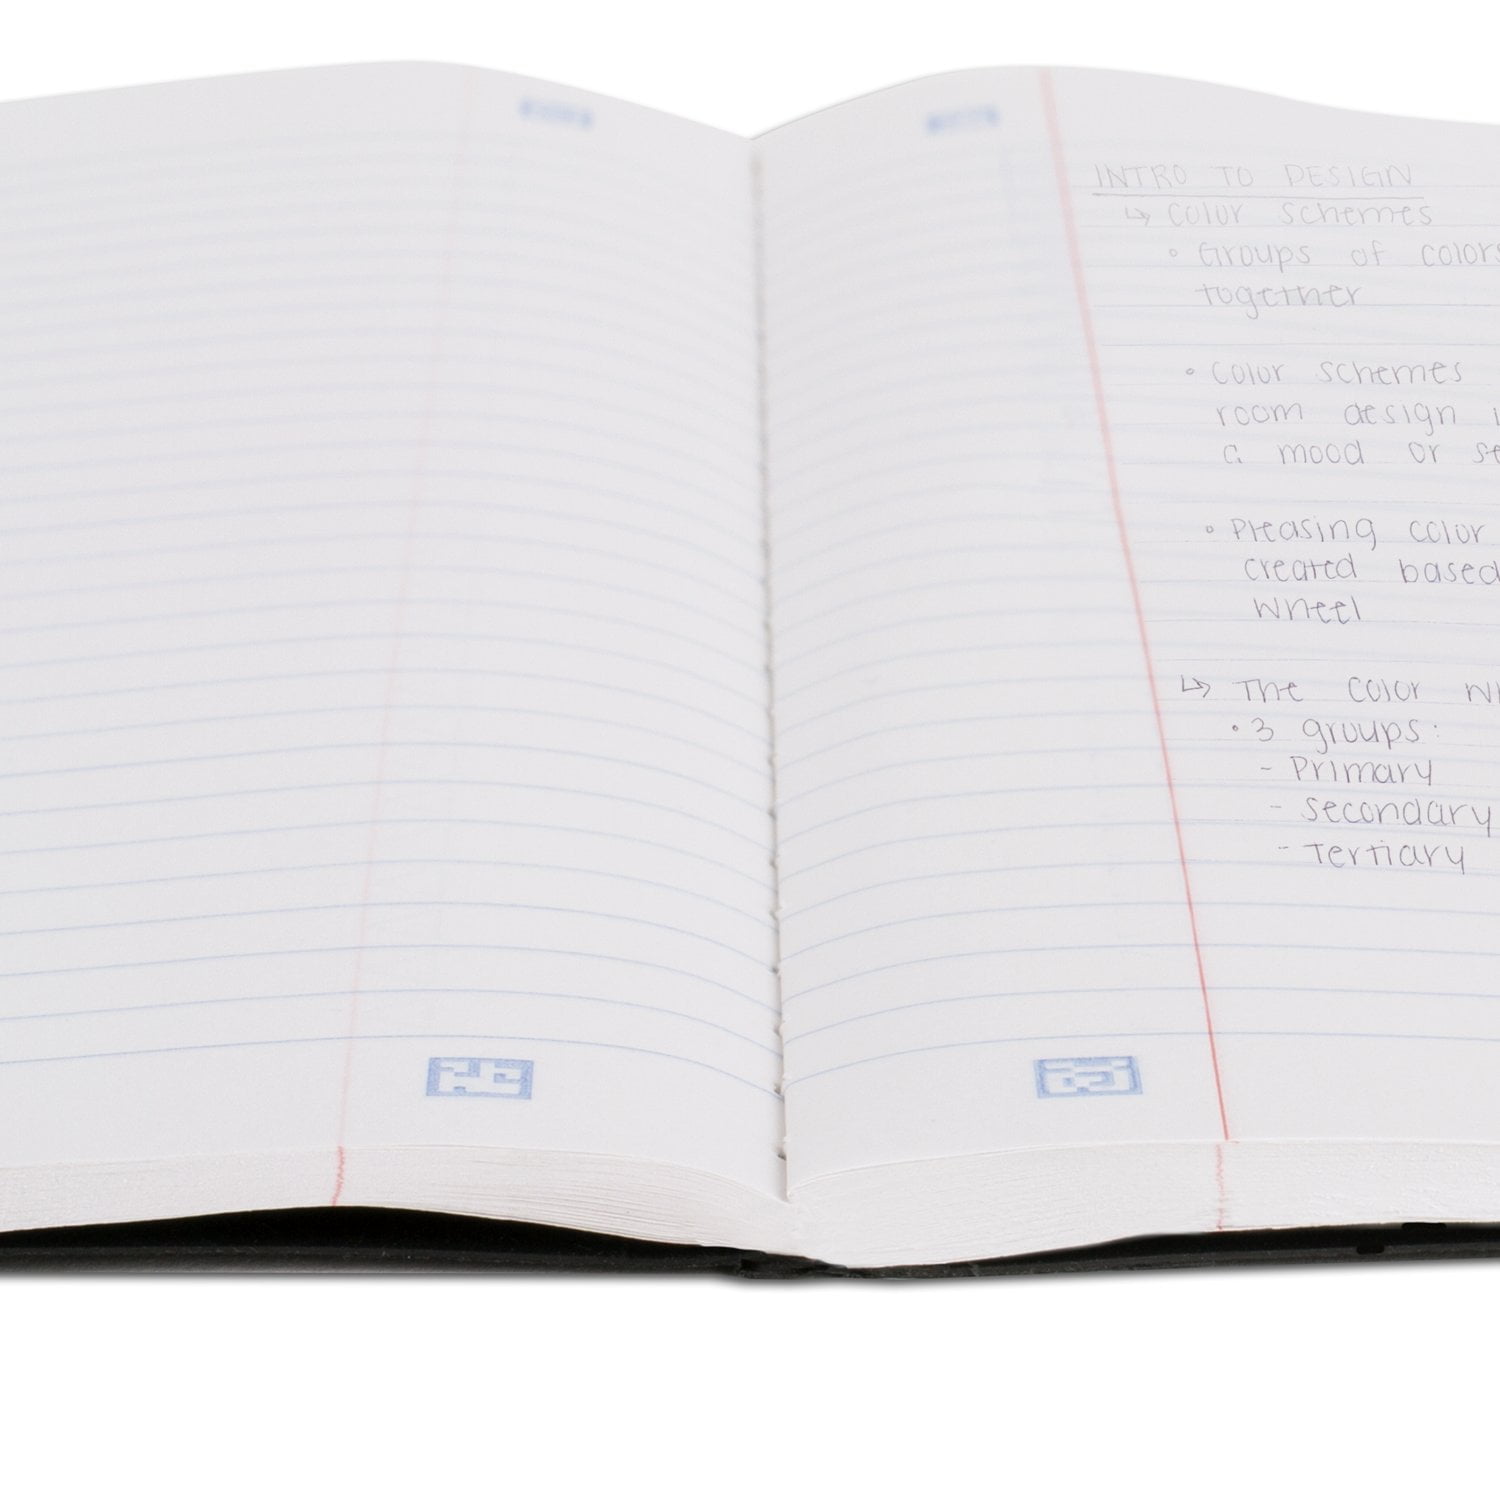 INTRO TO DESIGN
↳ Color schemes
◦ Groups of colors
together
◦ Color schemes
room design
a mood or
◦ Pleasing color
created based
wheel
↳ The color
• 3 groups:
- Primary
- Secondary
- Tertiary